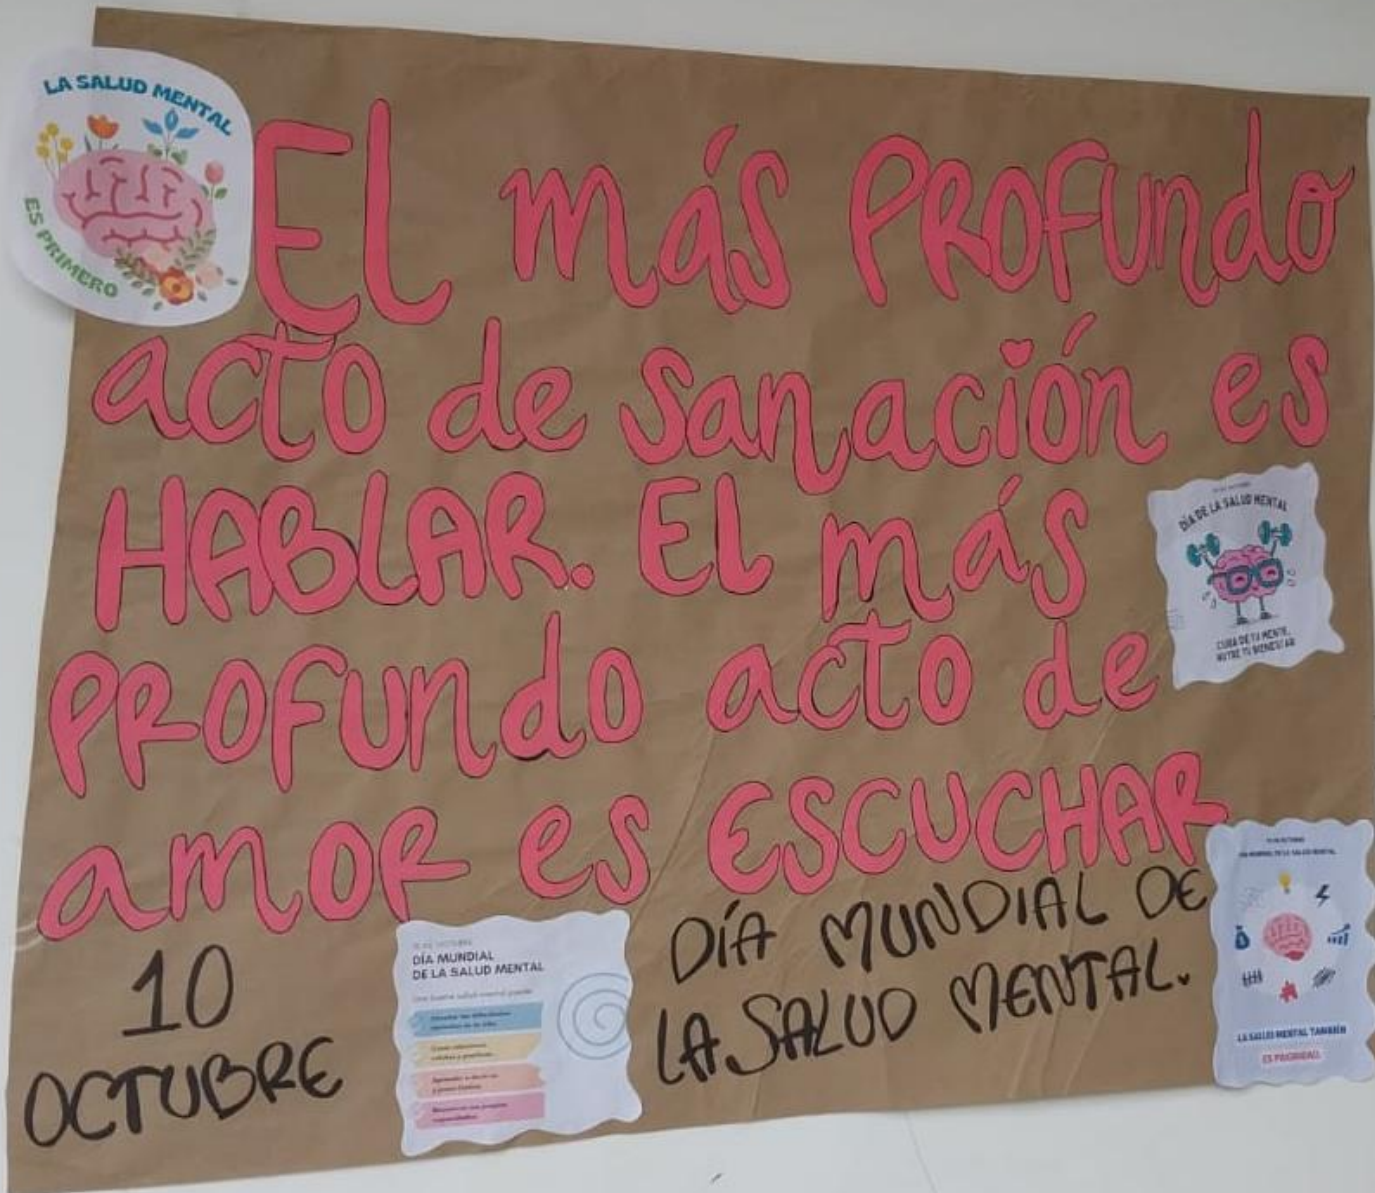 LA SALUD MENTAL
ES PRIMERO
El más PROFUNDO
acto de sanación es
HABLAR. El más
PROFUNDO acto de
amor es ESCUCHAR
DÍA DE LA SALUD MENTAL
CUIDA DE TU MENTE,
NUTRE TU BIENESTAR
10
OCTUBRE
10 DE OCTUBRE
DÍA MUNDIAL
DE LA SALUD MENTAL
Una buena salud mental puede:
DÍA MUNDIAL DE
LA SALUD MENTAL.
DÍA MUNDIAL DE LA SALUD MENTAL
LA SALUD MENTAL TAMBIÉN
ES PRIORIDAD.